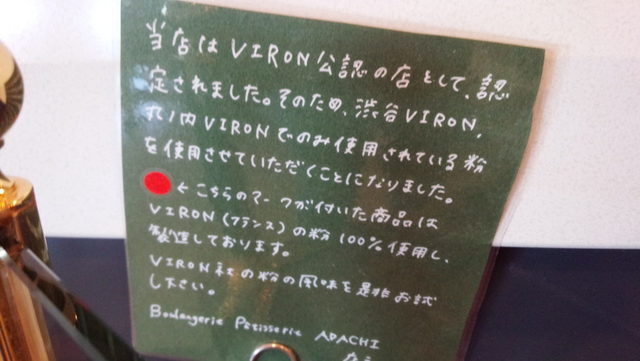 当店はVIRON公認の店として、認
定されました。そのため、渋谷VIRON,
丸ノ内VIRONでのみ使用されている粉
を使用させていただくことになりました。
←こちらのマークが付いた商品は
VIRON(フランス)の粉100%使用し、
製造しております。
VIRON社の粉の風味を是非お試
し下さい。
Boulangerie Pâtisserie ADACHI